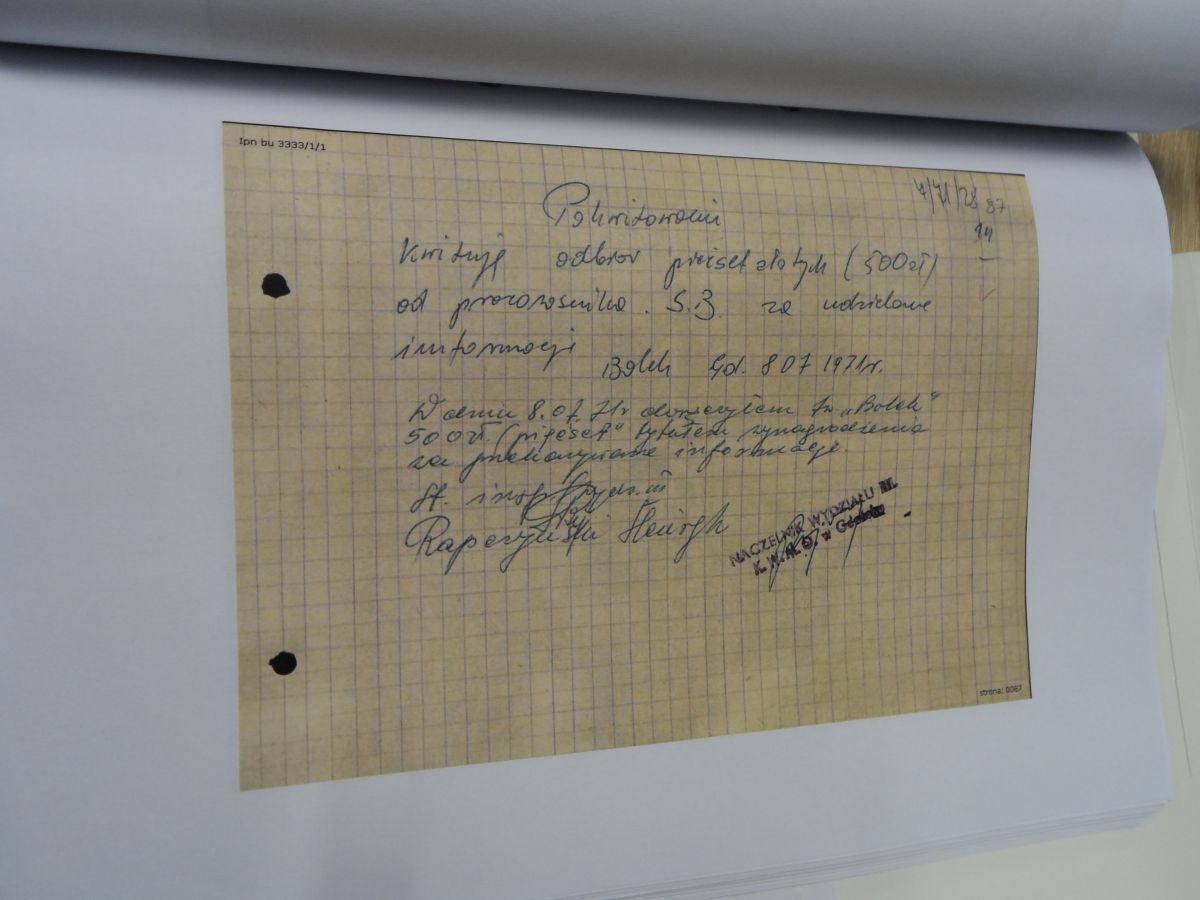 Ipn bu 3333/1/1
87
Pokwitowanie
Kwituję odbior pięiset złotych (500 zł)
od pracownika. S.B. za udzielone
informacje
Bolek Gd. 8 07 1971r.
W dniu 8.07.71r doręczyłem tw „Bolek"
500 zł. (pięćset" tytułem wynagrodzenia
za przekazywane informacje.
St. insp
Rapczyński Henryk
NACZELNIK WYDZIAŁU III.
K.W.M.O. w Gdańsku
strona: 0087